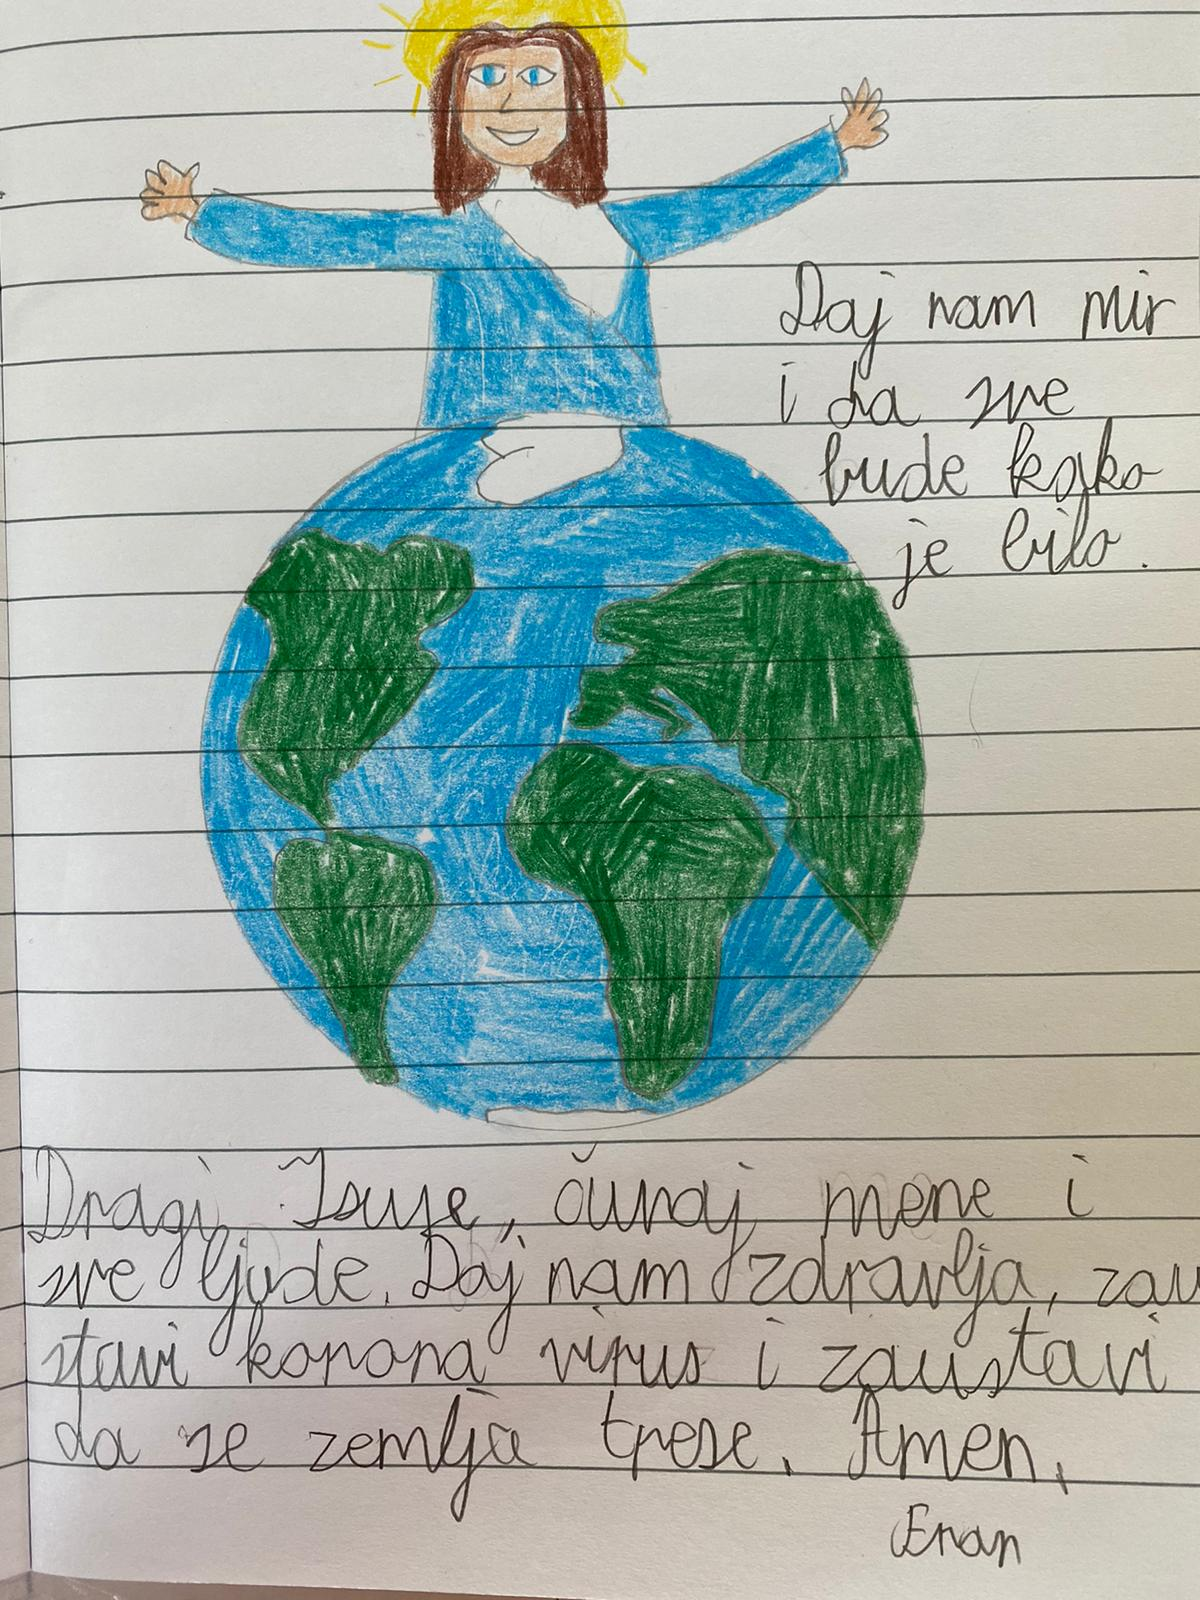 Daj nam mir
i da sve
bude kako
je bilo.
Dragi Isuse, čuvaj mene i
sve ljude. Daj nam zdravlja, zau
stavi korona virus i zaustavi
da se zemlja trese. Amen.